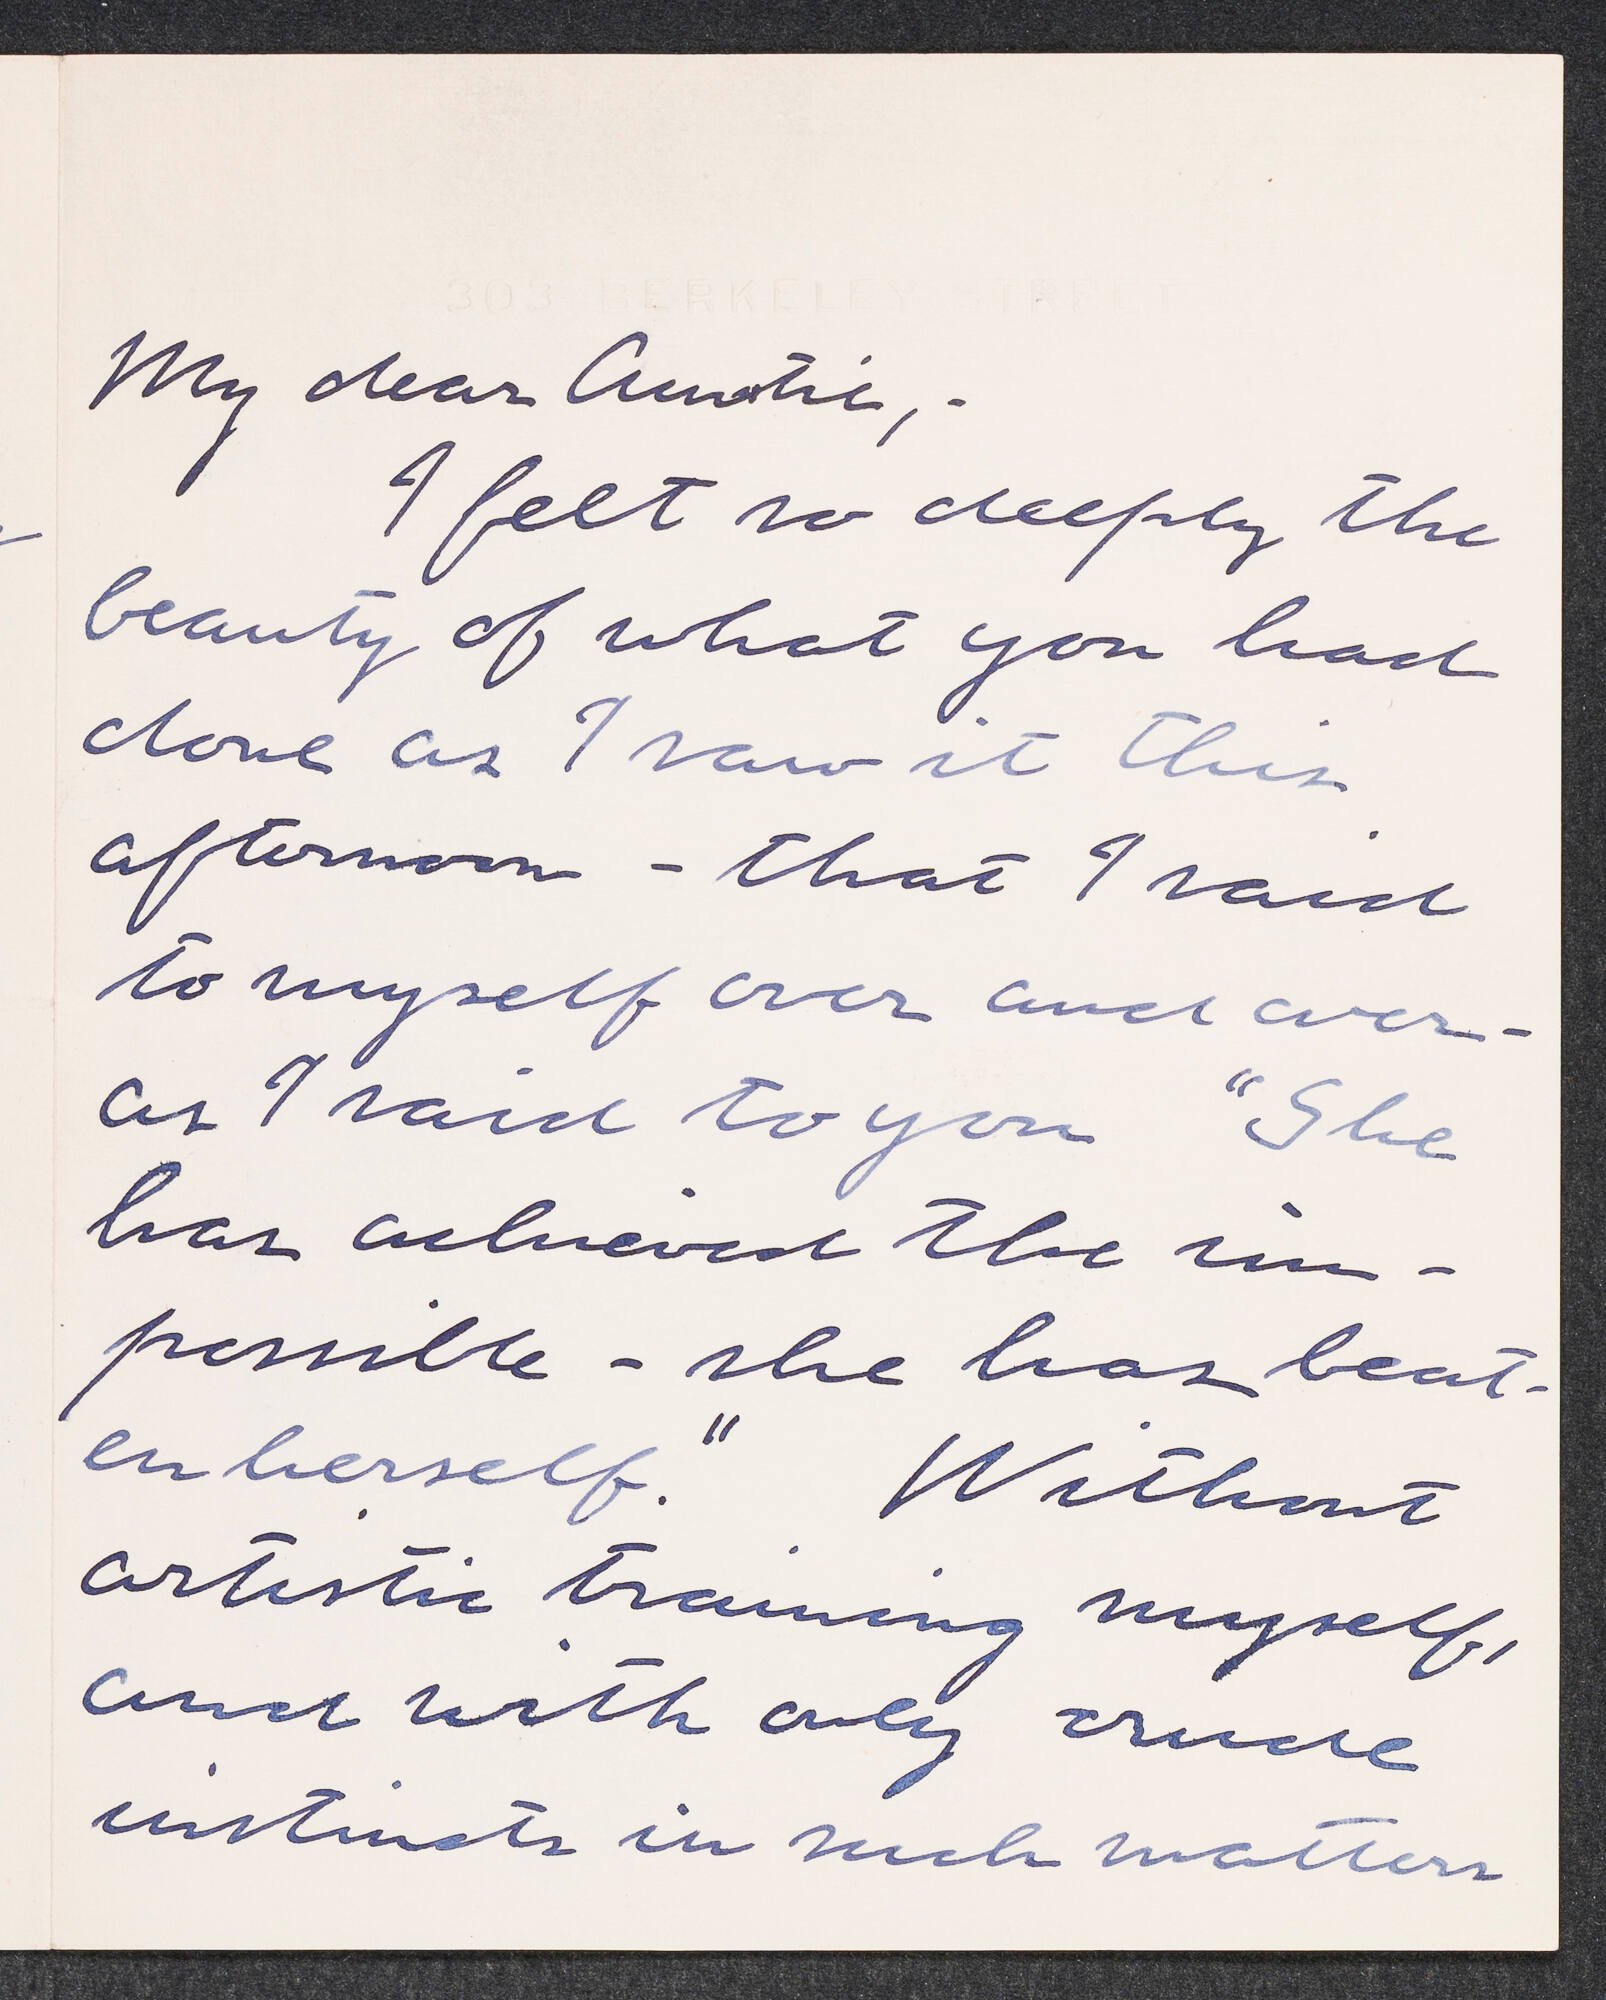 303 BERKELEY STREET
My dear Auntie,-
I felt so deeply the
beauty of what you had
done as I saw it this
afternoon - that I said
to myself over and over -
as I said to you "She
has achieved the im-
possible - she has beat-
en herself." Without
artistic training myself,
and with only crude
instincts in such matters